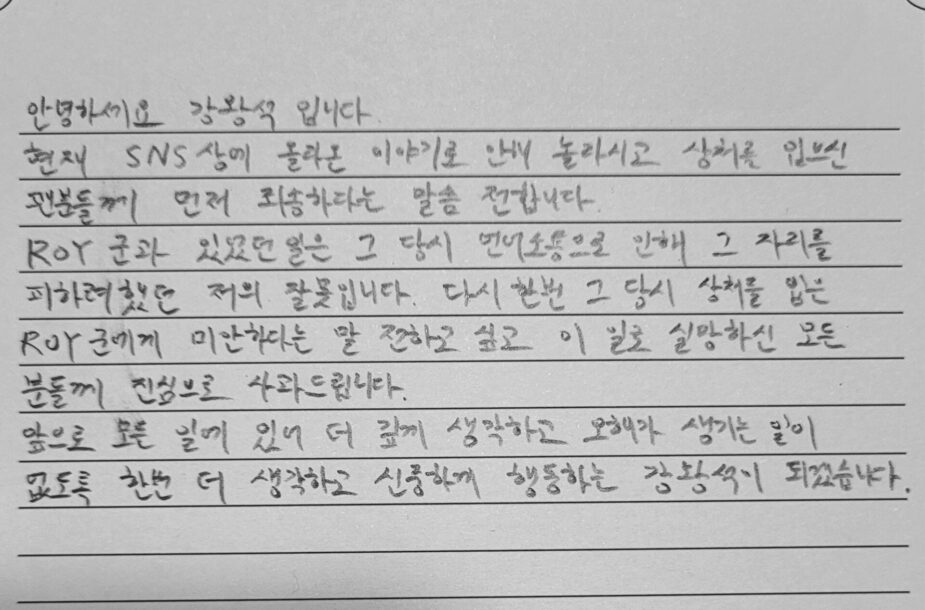 안녕하세요 강왕석 입니다.
현재 SNS상에 올라온 이야기로 인해 놀라시고 상처를 입으신
팬분들께 먼저 죄송하다는 말씀 전합니다.
ROY 군과 있었던 일은 그 당시 언어소통으로 인해 그 자리를
피하려했던 저의 잘못입니다. 다시 한번 그 당시 상처를 입은
ROY 군에게 미안하다는 말 전하고 싶고 이 일로 실망하신 모든
분들께 진심으로 사과드립니다.
앞으로 모든 일에 있어 더 깊게 생각하고 오해가 생기는 일이
없도록 한번 더 생각하고 신중하게 행동하는 강왕석이 되겠습니다.